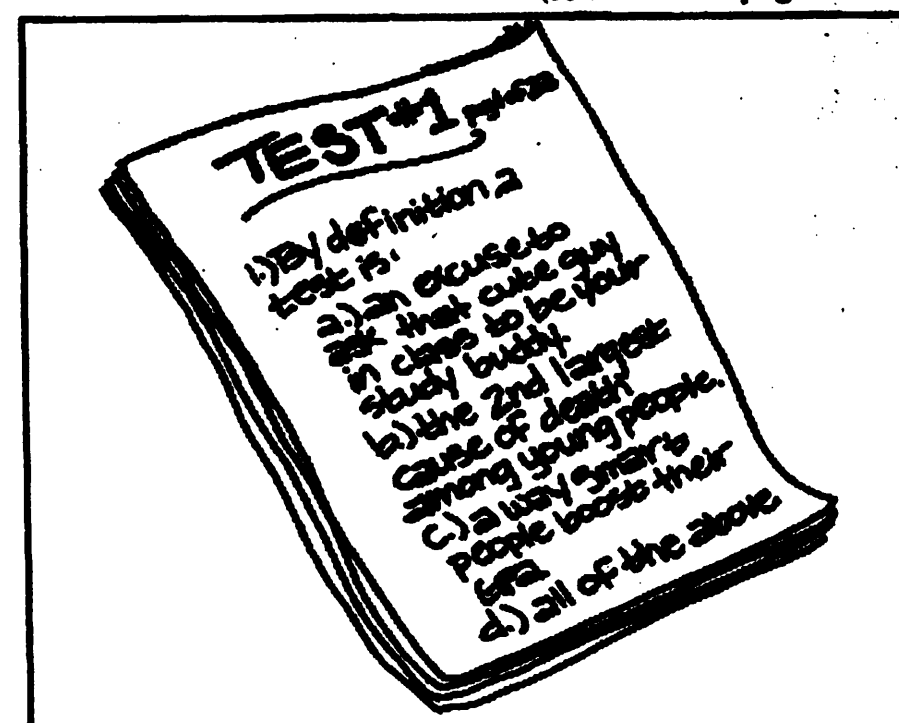 TEST #1
1.) By definition a
test is:
a.) an excuse to
ask that cute guy
in class to be your
study buddy.
b.) the 2nd largest
cause of death
among young people.
c.) a way smart
people boost their
GPA
d.) all of the above